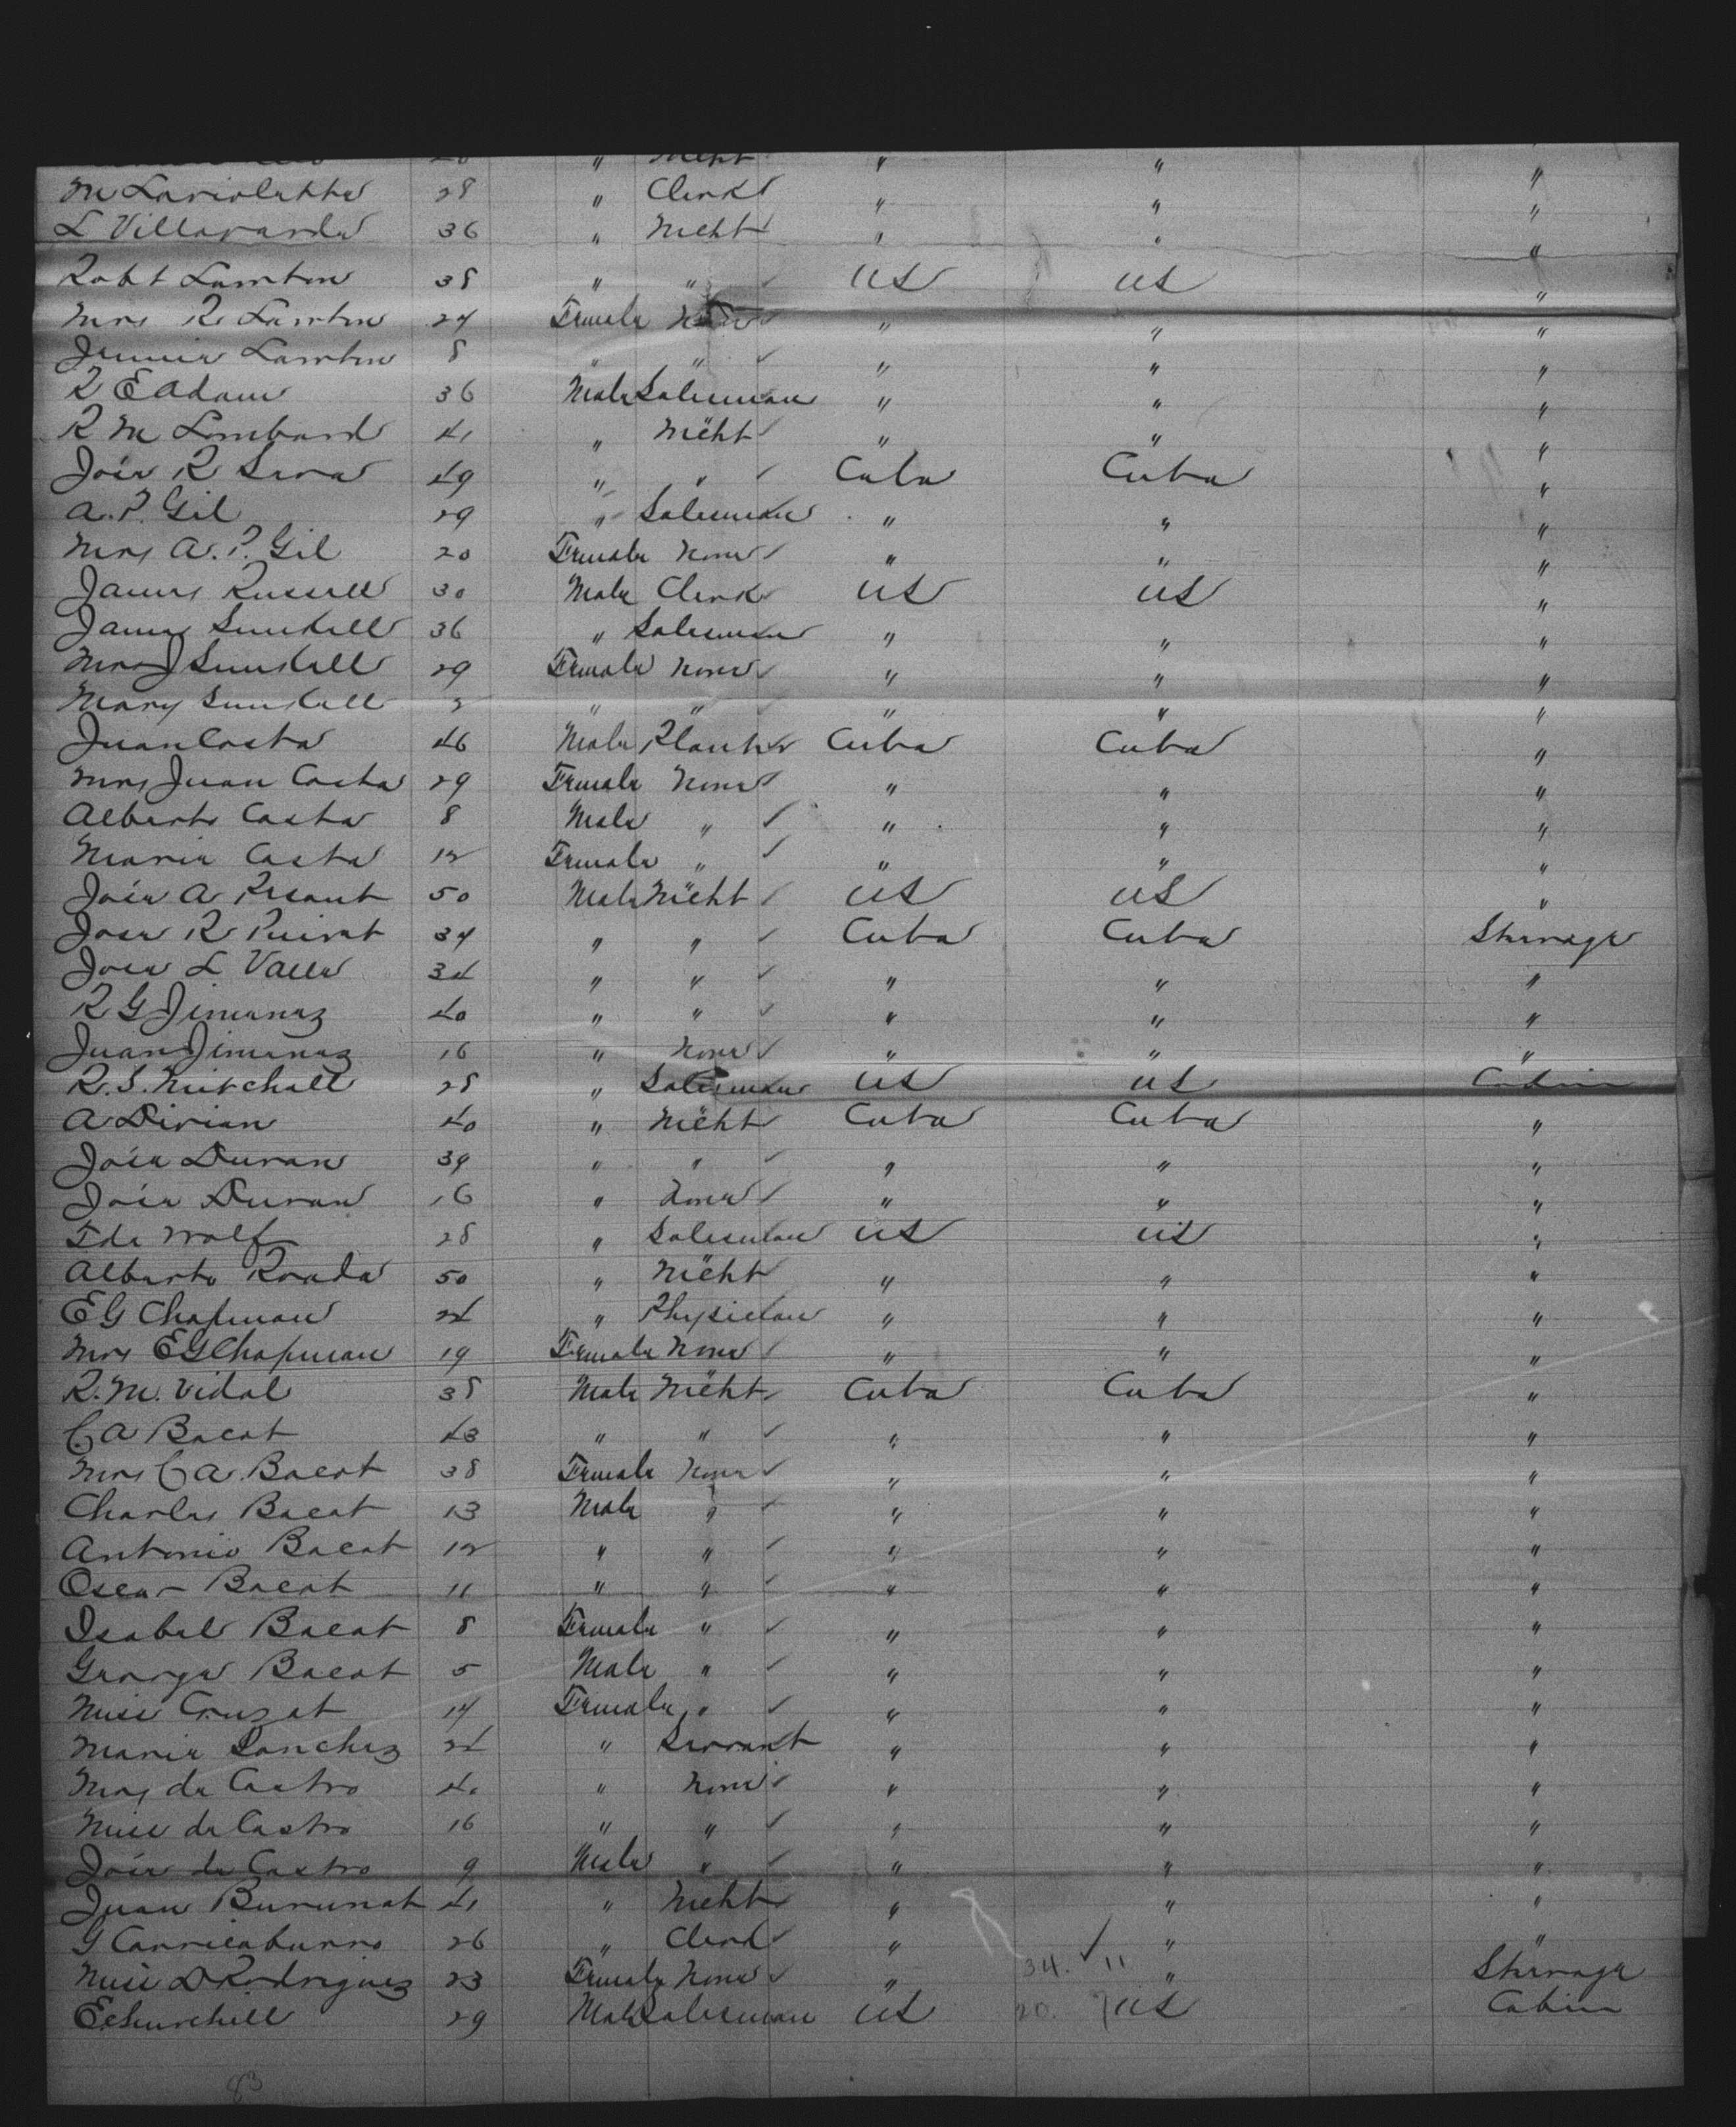 " Mcht " " "
M Lariolette 28 " Clerk " " "
L Villaverde 36 " Mcht " " "
Robt Lawton 38 " " US US "
Mrs R Lawton 24 Female None " " "
Jennie Lawton 8 " " " " "
R E Adam 36 Male Salesman " " "
R M Lombard 41 " Mcht " " "
José R Serra 49 " " Cuba Cuba "
A. P. Gil 29 " Salesman " " "
Mrs A. P. Gil 20 Female None " " "
James Russell 30 Male Clerk US US "
James 36 " Salesman " " "
Mrs J 29 Female None " " "
Mary 2 " " " " "
Juan Costa 46 Male Planter Cuba Cuba "
Mrs Juan Costa 29 Female None " " "
Alberto Costa 8 Male " " " "
Maria Costa 12 Female " " " "
José A Pesant 50 Male Mcht US US "
José R 34 " " Cuba Cuba Steerage
José L Valle 34 " " " " "
R G Jimenez 40 " " " " "
Juan Jimenez 16 " None " " "
R. S. Mitchell 28 " Salesman US US Cabin
A Divian 40 " Mcht Cuba Cuba "
José Duran 39 " " " " "
José Duran 16 " None " " "
Ide Wolf 28 " Salesman US US "
Alberto 50 " Mcht " " "
E G Chapman 24 " Physician " " "
Mrs E G Chapman 19 Female None " " "
R. M. Vidal 38 Male Mcht Cuba Cuba "
C A Bacot 43 " " " " "
Mrs C A. Bacot 38 Female None " " "
Charles Bacot 13 Male " " " "
Antonio Bacot 12 " " " " "
Oscar Bacot 11 " " " " "
Isabel Bacot 8 Female " " " "
George Bacot 5 Male " " " "
Miss Cruzat 14 Female " " " "
Maria Sanchez 24 " Servant " " "
Mrs de Castro 40 " None " " "
Miss de Castro 16 " " " " "
José de Castro 9 Male " " " "
Juan Burunat 41 " Mcht " " "
G Carricaburro 26 " Clerk " " "
34. ✓ 11
Miss D Rodriguez 23 Female None " " Steerage
E Churchill 29 Male Salesman US 20. 7 US Cabin